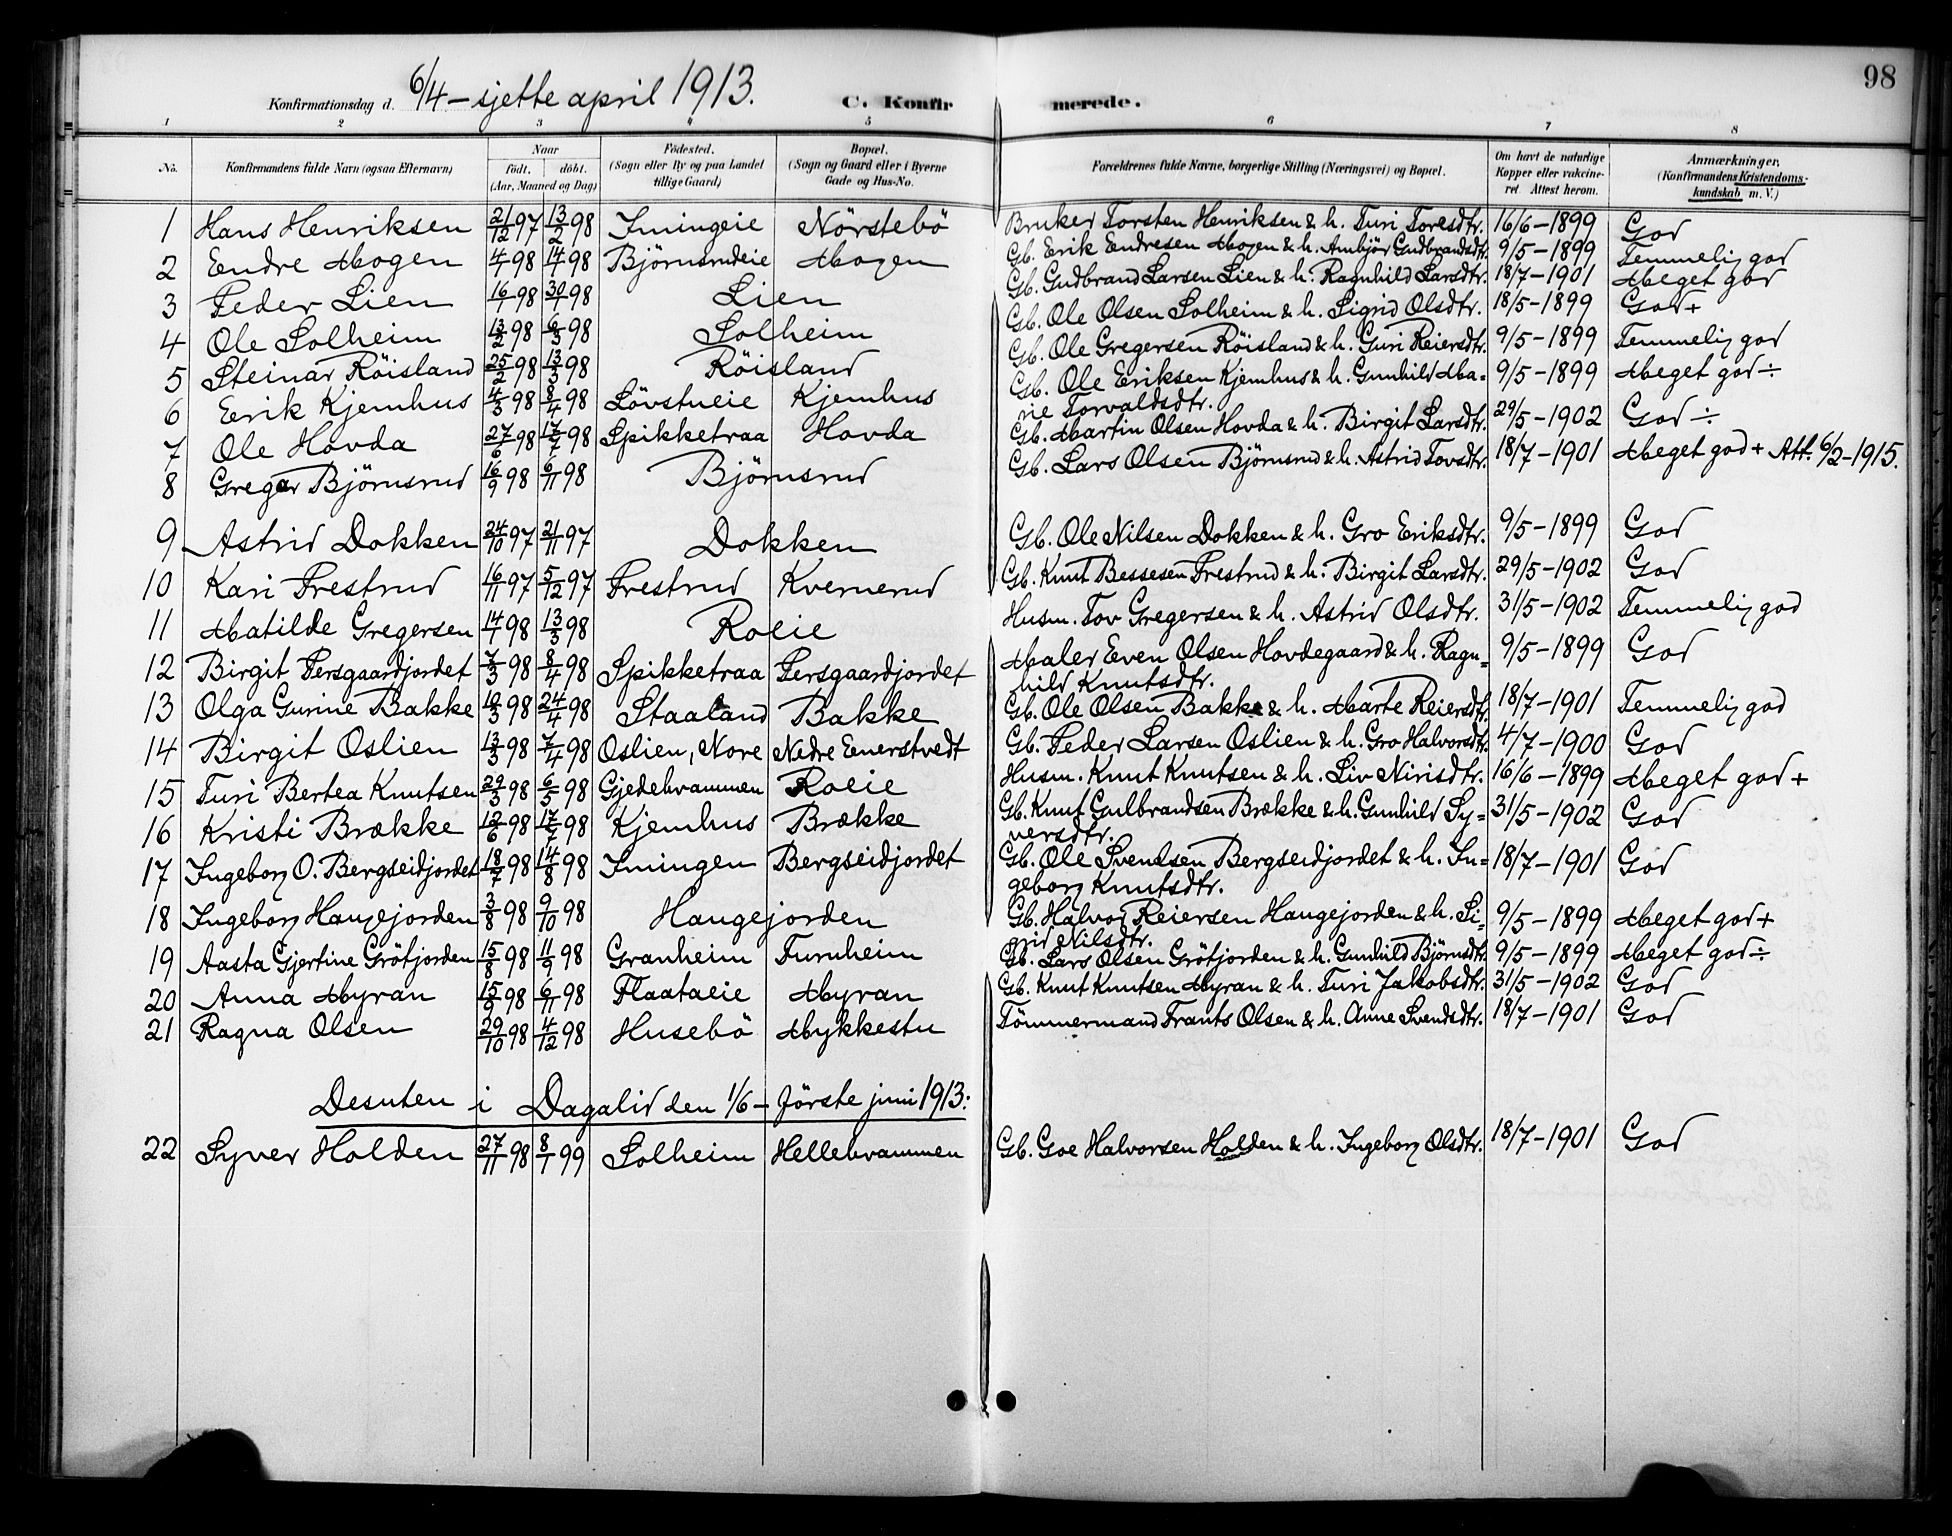 98
Konfirmationsdag d. 6/4 – sjette april 1913. C. Konfirmerede.
1 2 3 4 5 6 7 8
No. Konfirmandens fulde Navn (ogsaa Efternavn) Naar födt. döbt. (Aar, Maaned og Dag) Födested. (Sogn eller By og paa Landet tillige Gaard) Bopæl. (Sogn og Gaard eller i Byerne Gade og Hus-No. Forældrenes fulde Navne, borgerlige Stilling (Næringsvei) og Bopæl. Om havt de naturlige Kopper eller vakcineret. Attest herom. Anmærkninger. (Konfirmandens Kristendomskundskab m. V.)
1 Hans Henriksen 21/12 97 13/2 98 Imingeie Nörstebö Bruker Torsten Henriksen & h. Turi Toresdtr. 16/6–1899 God
2 Endre Mogen 4/1 98 14/1 98 Björnsrudeie Mogen Gb. Erik Endresen Mogen & h. Anbjör Gudbrandsdtr. 9/5–1899 Temmelig god
3 Peder Lien 16/1 98 30/1 98 Lien Gb. Gudbrand Larsen Lien & h. Ragnhild Larsdtr. 18/7–1901 Meget god
4 Ole Solheim 13/2 98 6/3 98 Solheim Gb. Ole Olsen Solheim & h. Sigrid Olsdtr. 18/5–1899 God+
5 Steinar Röisland 25/2 98 13/3 98 Röisland Gb. Ole Gregersen Röisland & h. Guri Reiersdtr. 9/5–1899 Temmelig god
6 Erik Kjemhus 4/3 98 8/4 98 Lövstueie Kjemhus Gb. Ole Eriksen Kjemhus & h. Gunhild Ma=
rie Torvaldsdtr. 9/5–1899 Meget god ÷
7 Ole Hovda 27/6 98 17/7 98 Spikketraa Hovda Gb. Martin Olsen Hovda & h. Birgit Larsdtr. 29/5–1902 God ÷
8 Gregar Björnsrud 16/9 98 6/11 98 Björnsrud Gb. Lars Olsen Björnsrud & h. Astrid Tovsdtr. 18/7–1901 Meget god + Att. 6/2–1915.
9 Astrid Dokken 24/10 97 21/11 97 Dokken Gb. Ole Nilsen Dokken & h. Gro Eriksdtr. 9/5–1899 God
10 Kari Frestrud 16/11 97 5/12 97 Frestrud Kvernerud Gb. Knut Bessesen Frestrud & h. Birgit Larsdtr. 29/5–1902 God
11 Matilde Gregersen 14/1 98 13/3 98 Roeie Husm. Tov Gregersen & h. Astrid Olsdtr. 31/5–1902 Temmelig god
12 Birgit Persgaardjordet 7/3 98 8/4 98 Spikketraa Persgaardjordet Maler Even Olsen Hovdegaard & h. Ragn=
hild Knutsdtr. 9/5–1899 God
13 Olga Gurine Bakke 10/3 98 24/4 98 Staaland Bakke Gb. Ole Olsen Bakke & h. Marte Reiersdtr. 18/7–1901 Temmelig god
14 Birgit Oslien 13/3 98 7/4 98 Oslien, Nore Nedre Enerstvedt Gb. Peder Larsen Oslien & h. Gro Halvorsdtr. 4/7–1900 God
15 Turi Bertea Knutsen 29/3 98 6/5 98 Gjedehvammen Roeie Husm. Knut Knutsen & h. Liv Nirisdtr. 16/6–1899 Meget god +
16 Kristi Brække 12/6 98 17/7 98 Kjemhus Brække Gb. Knut Gulbrandsen Brække & h. Gunhild Sy=
versdtr. 31/5–1902 God
17 Ingeborg O. Bergseidjordet 18/7 98 14/8 98 Imingen Bergseidjordet Gb. Ole Svendsen Bergseidjordet & h. In=
geborg Knutsdtr. 18/7–1901 God
18 Ingeborg Haugejorden 3/8 98 9/10 98 Haugejorden Gb. Halvor Reiersen Haugejorden & h. Si=
grid Nilsdtr. 9/5–1899 Meget god +
19 Aasta Gjertine Grötjorden 15/8 98 11/9 98 Granheim Furuheim Gb. Lars Olsen Grötjorden & h. Gunhild Björnsdtr. 9/5–1899 Meget god ÷
20 Anna Myran 15/9 98 6/11 98 Flaataeie Myran Gb. Knut Knutsen Myran & h. Turi Jakobsdtr. 31/5–1902 God
21 Ragna Olsen 29/10 98 4/12 98 Husebö Mykkestu Tömmermand Frants Olsen & h. Anne Svendsdtr. 18/7–1901 God
Desuten i Dagalid den 1/6 – förste juni 1913:
22 Syver Holden 27/11 98 8/1 99 Solheim Hellehvammen Gb. Goe Halvorsen Holden & h. Ingeborg Olsdtr. 18/7–1901 God